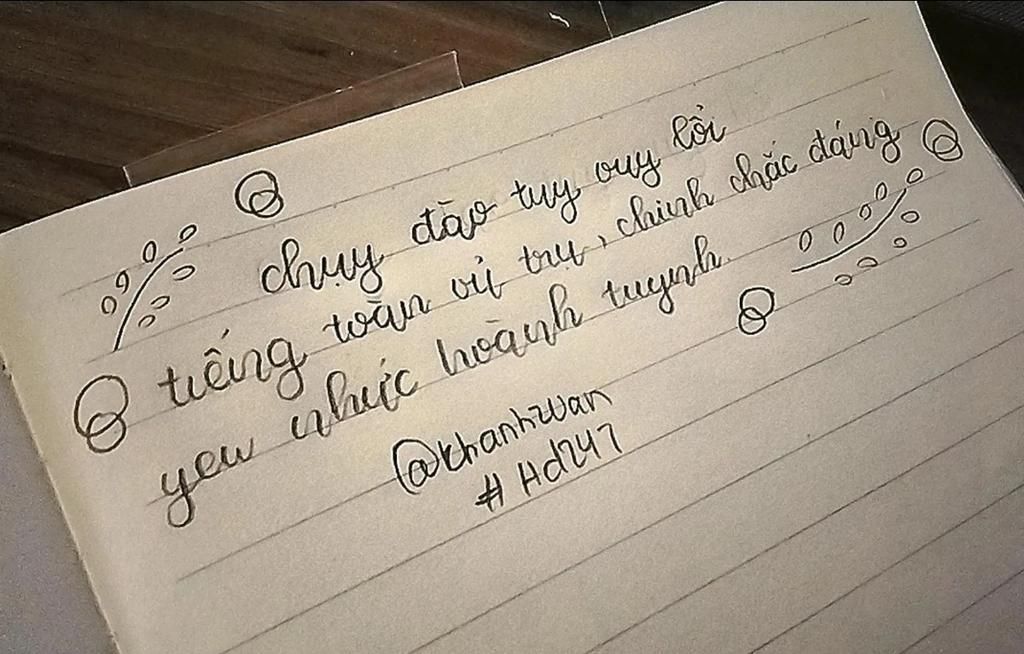 chụy đào tuy ouy lồi
tiếng toàn vủ trụ, chinh chắc đáng
yew nhức hoành tuynh.
@khanhwan
#Hd247